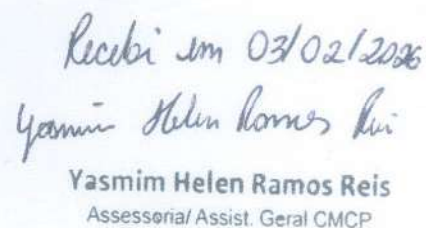 Recebi em 03/02/2026
Yasmim Helen Ramos Reis
Yasmim Helen Ramos Reis
Assessoria/ Assist. Geral CMCP